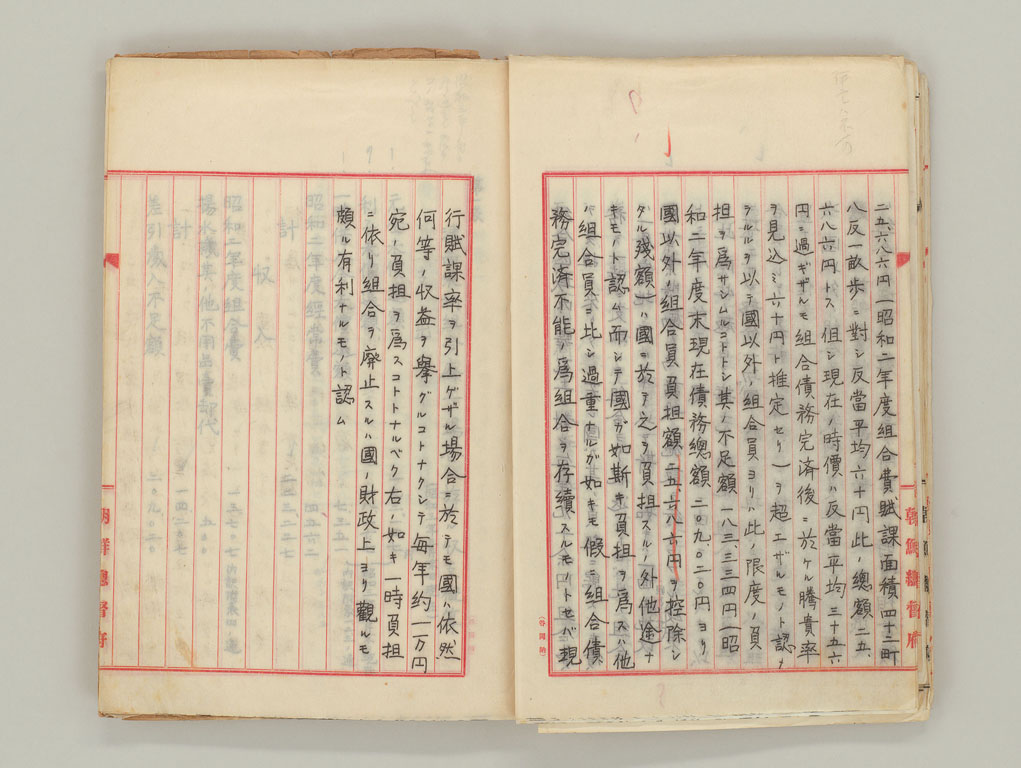 二五、六八六円(昭和二年度組合費賦課面積四十二町
八反一畝歩ニ對シ反當平均六十円此ノ總額二五、
六八六円トス 但シ現在ノ時價ハ反當平均三十五六
円ニ過ギザルモ組合債務完済後ニ於ケル騰貴率
ヲ見込ミ六十円ト推定セリ)ヲ超エザルモノト認メ
ラルルヲ以テ國以外ノ組合員ヨリハ此ノ限度ノ負
担ヲ爲サシムルコトトシ其ノ不足額一八三、三三四円(昭
和二年度末現在債務總額二〇九、〇二〇円ヨリ
國以外ノ組合員負担額二五、六八六円ヲ控除シ
タル残額)ハ國ニ於テ之ヲ負担スルノ外他途ナ
キモノト認ム而シテ國ガ如斯キ負担ヲ爲スハ他
ノ組合員ニ比シ過重ナルガ如キモ假ニ組合債
務完済不能ノ爲組合ヲ存續スルモノトセバ現
朝鮮總督府
行賦課率ヲ引上ゲザル場合ニ於テモ國ハ依然
何等ノ収益ヲ擧グルコトナクシテ毎年約一万円
宛ノ負担ヲ爲スコトトナルベク右ノ如キ一時負担
ニ依リ組合ヲ廃止スルハ國ノ財政上ヨリ觀ルモ
頗ル有利ナルモノト認ム
朝鮮總督府